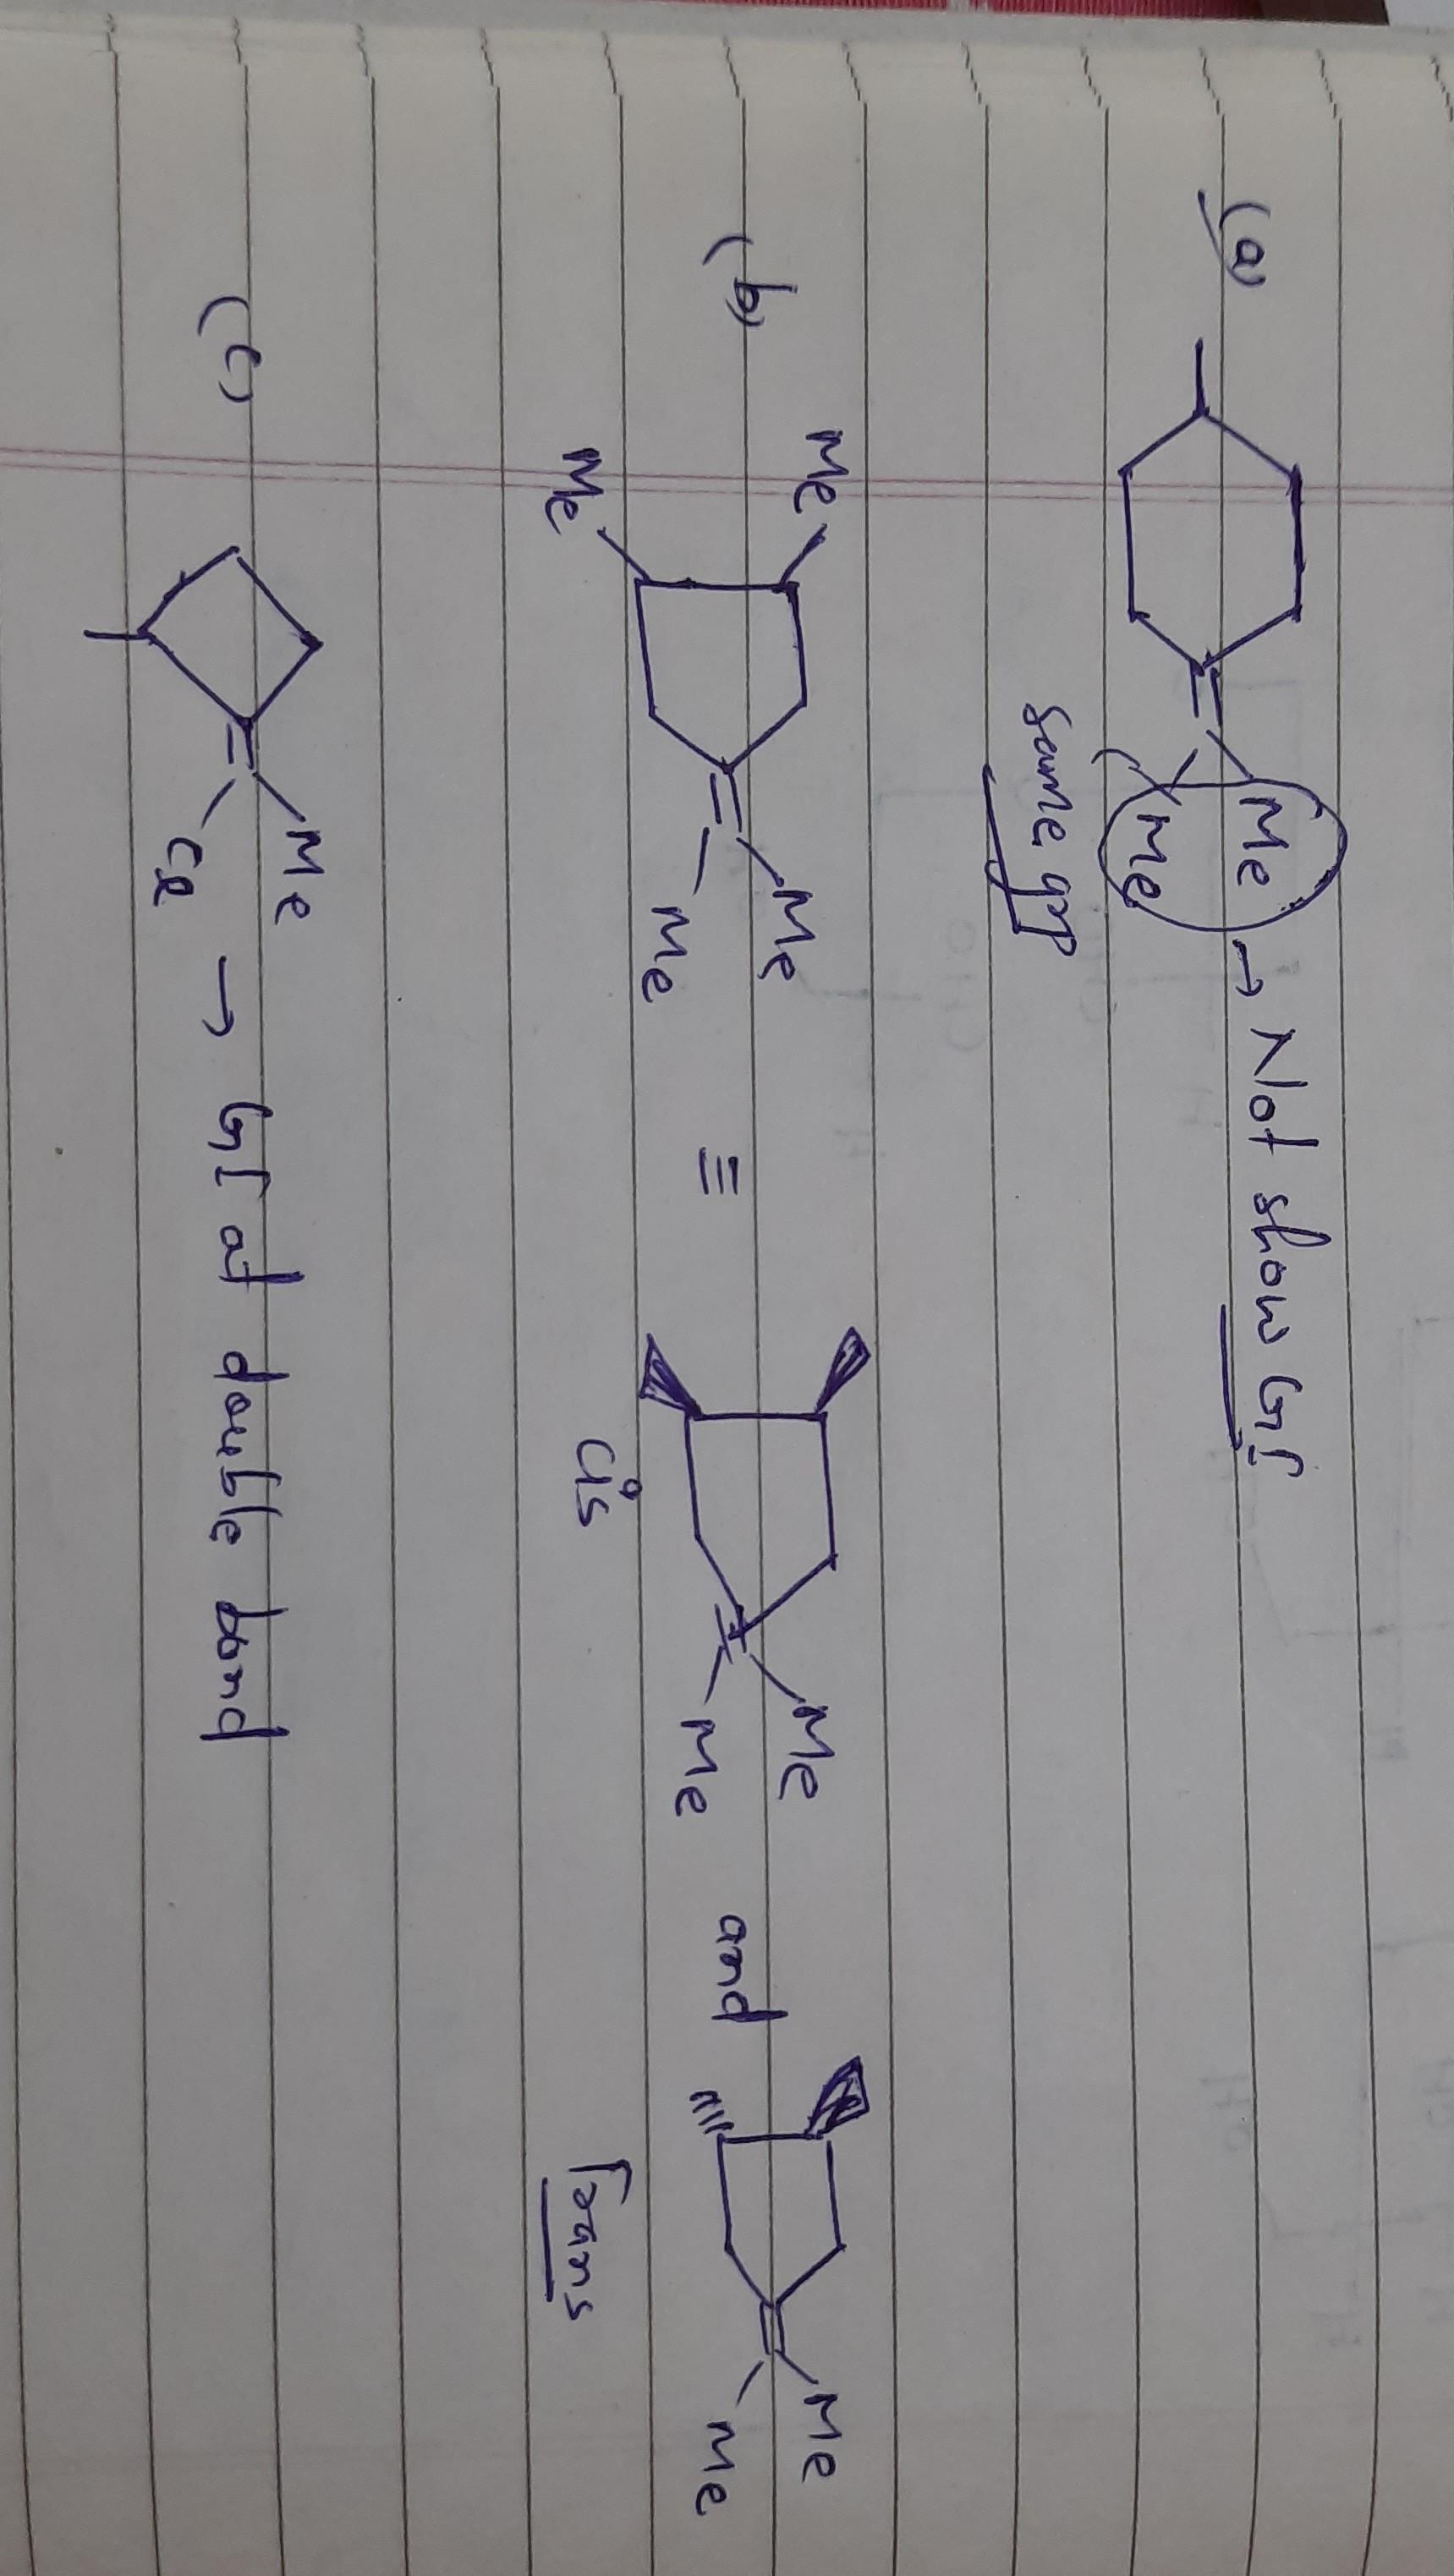 (a) Me → Not show GI
Me
same grp
(b) Me Me ≡ Me and Me
Me Me Me Me
Cis Trans
(c) Me → GI at double bond
Cl